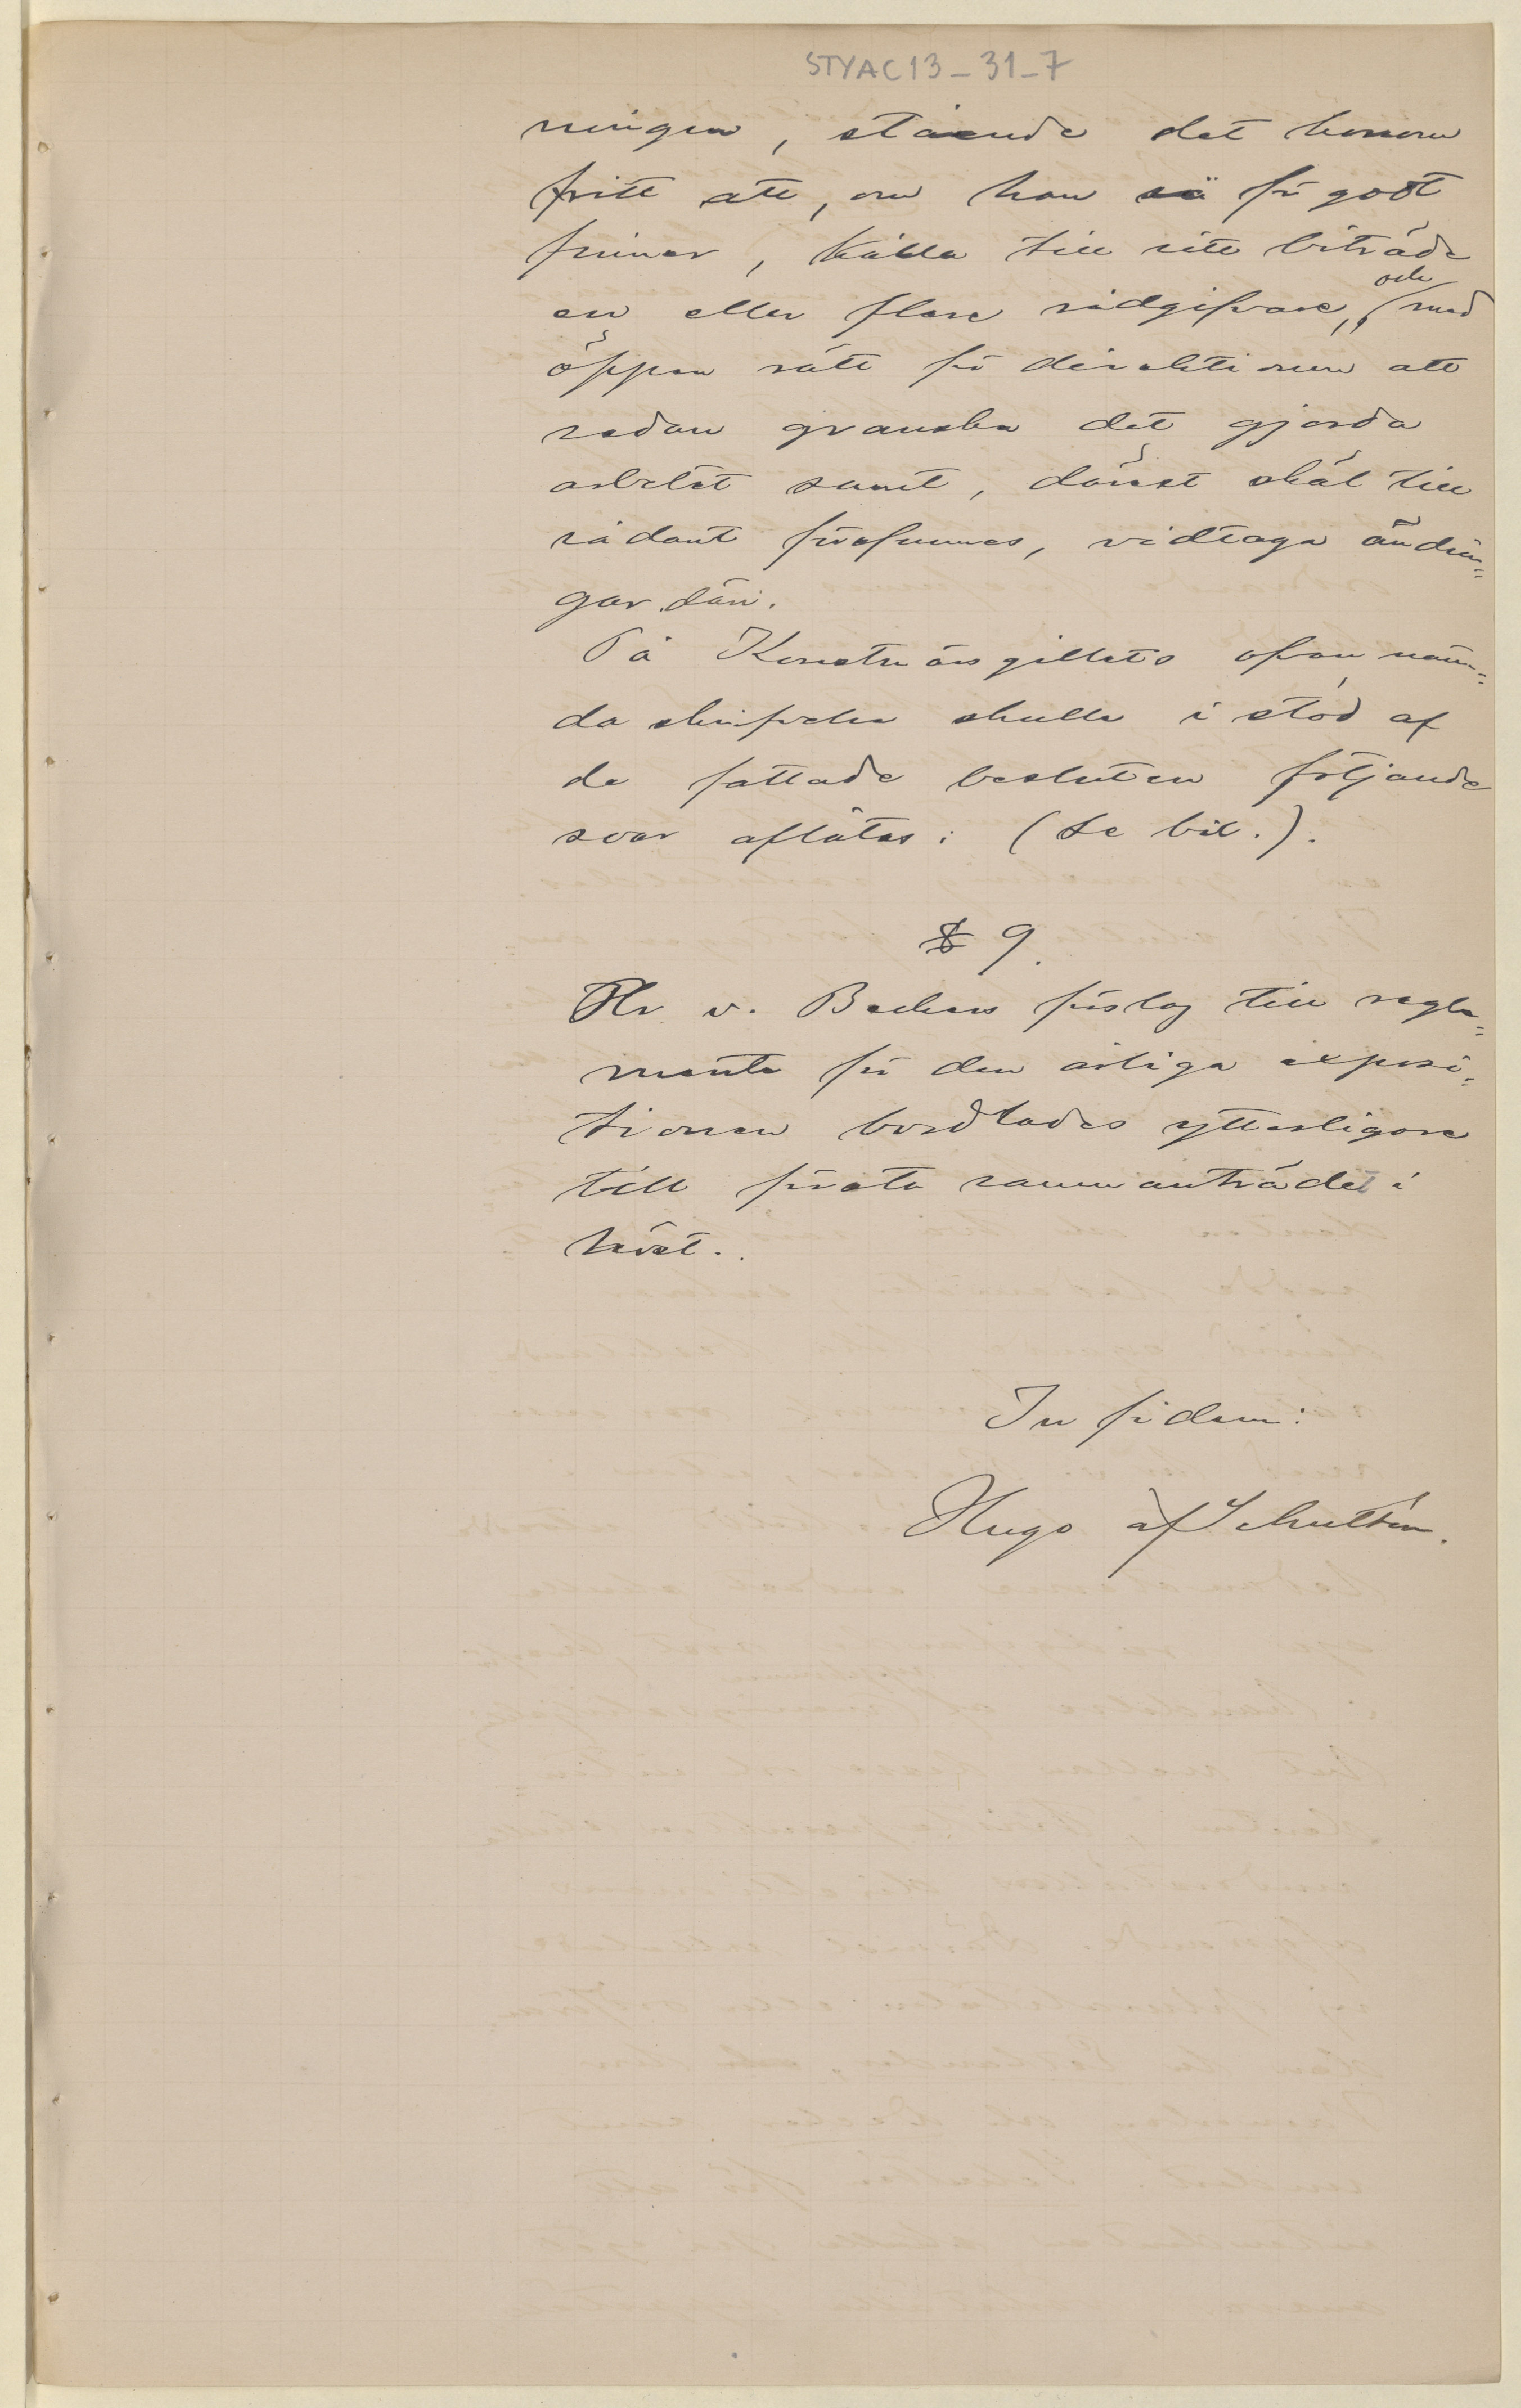 STYAC13_31_7
ningen, stående det honom
fritt att, om han så för godt
finner, kalla till sitt biträde
en eller flere rådgifvare, och med
öppen rätt för direktionen att
sedan granska det gjorda
arbetet samt, därest skäl till
sådant förefunnes, vidtaga ändrin=
gar däri.
På Konstnärsgillets ofvan näm=
da skrifvelse skulle i stöd af
de fattade besluten följande
svar aflåtas: (se bil.).
§ 9.
Hr v. Beckers förslag till regle=
mente för den årliga exposi=
tionen bordlades ytterligare
till första sammanträdet i
höst.
In fidem:
Hugo af Schultén.